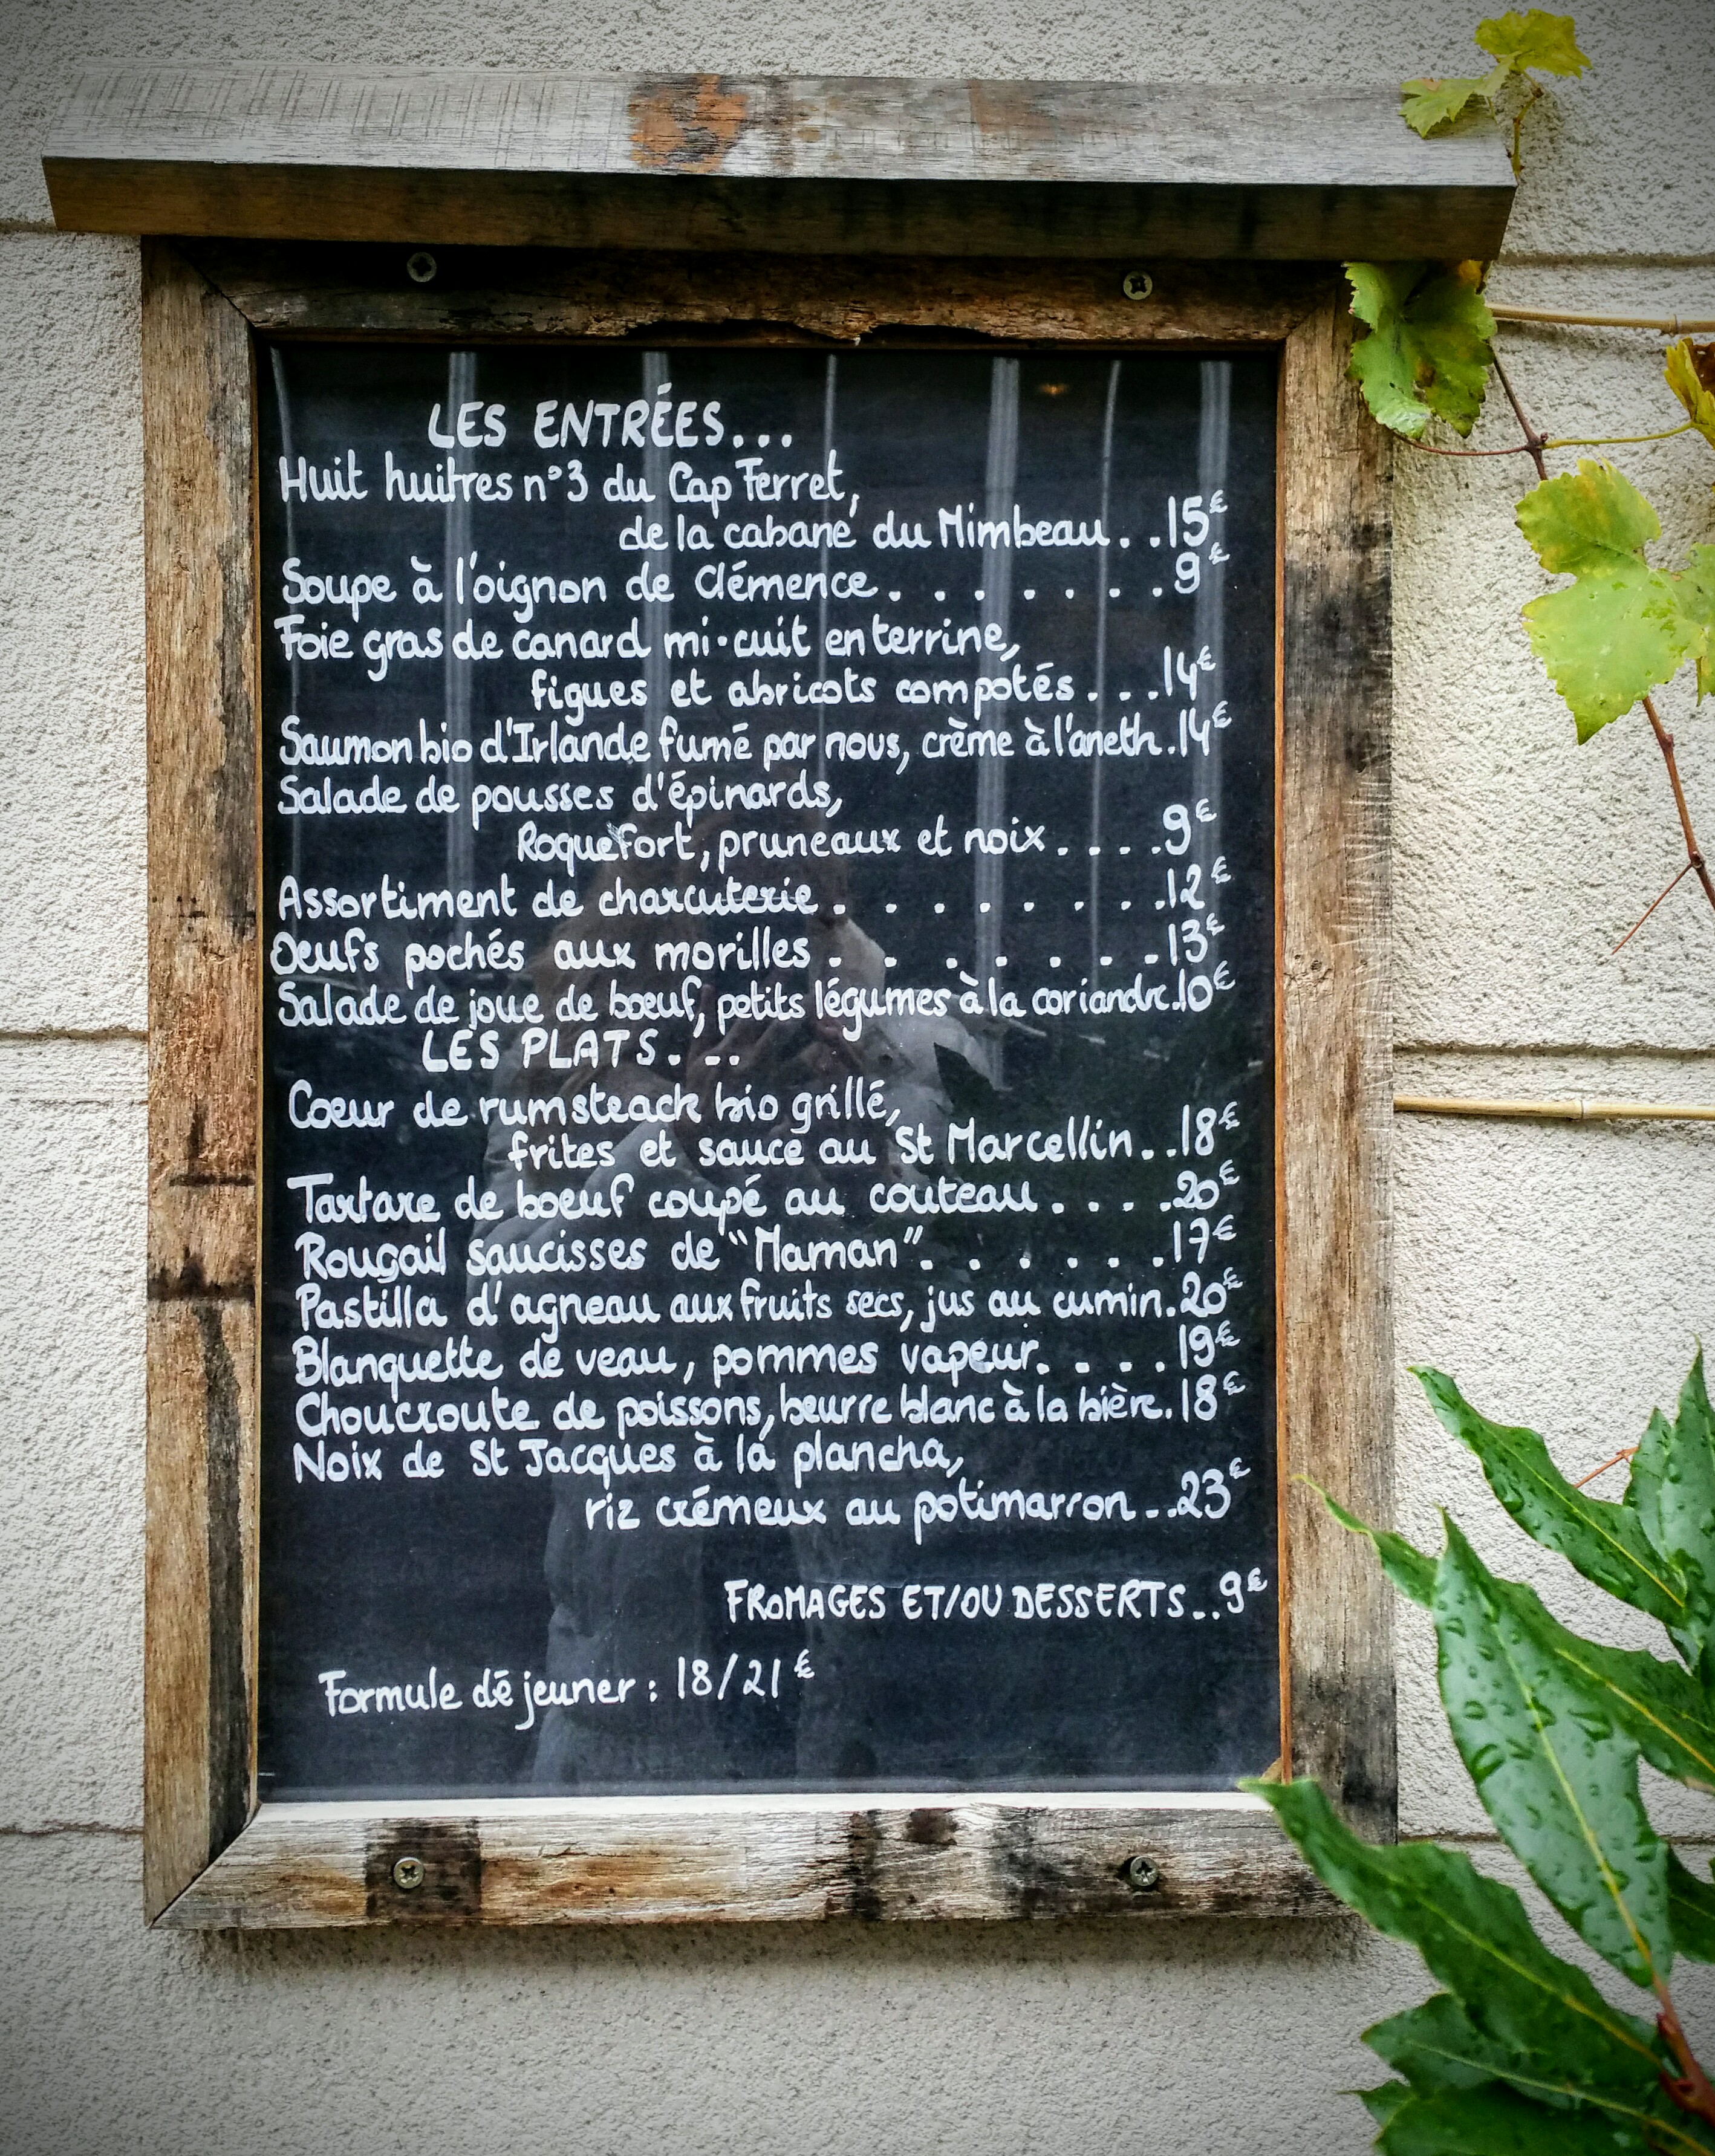 LES ENTRÉES...
Huit huitres n°3 du Cap Ferret,
de la cabane du Mimbeau...15€
Soupe à l'oignon de Clémence.......9€
Foie gras de canard mi-cuit en terrine,
figues et abricots compotés...14€
Saumon bio d'Irlande fumé par nous, crème à l'aneth.14€
Salade de pousses d'épinards,
Roquefort, pruneaux et noix....9€
Assortiment de charcuterie........12€
Oeufs pochés aux morilles.......13€
Salade de joue de boeuf, petits légumes à la coriandre.10€
LES PLATS...
Coeur de rumsteack bio grillé,
frites et sauce au St Marcellin..18€
Tartare de boeuf coupé au couteau....20€
Rougail saucisses de "Maman"......17€
Pastilla d'agneau aux fruits secs, jus au cumin.20€
Blanquette de veau, pommes vapeur....19€
Choucroute de poissons, beurre blanc à la bière.18€
Noix de St Jacques à la plancha,
riz crémeux au potimarron..23€
FROMAGES ET/OU DESSERTS..9€
Formule déjeuner : 18/21€